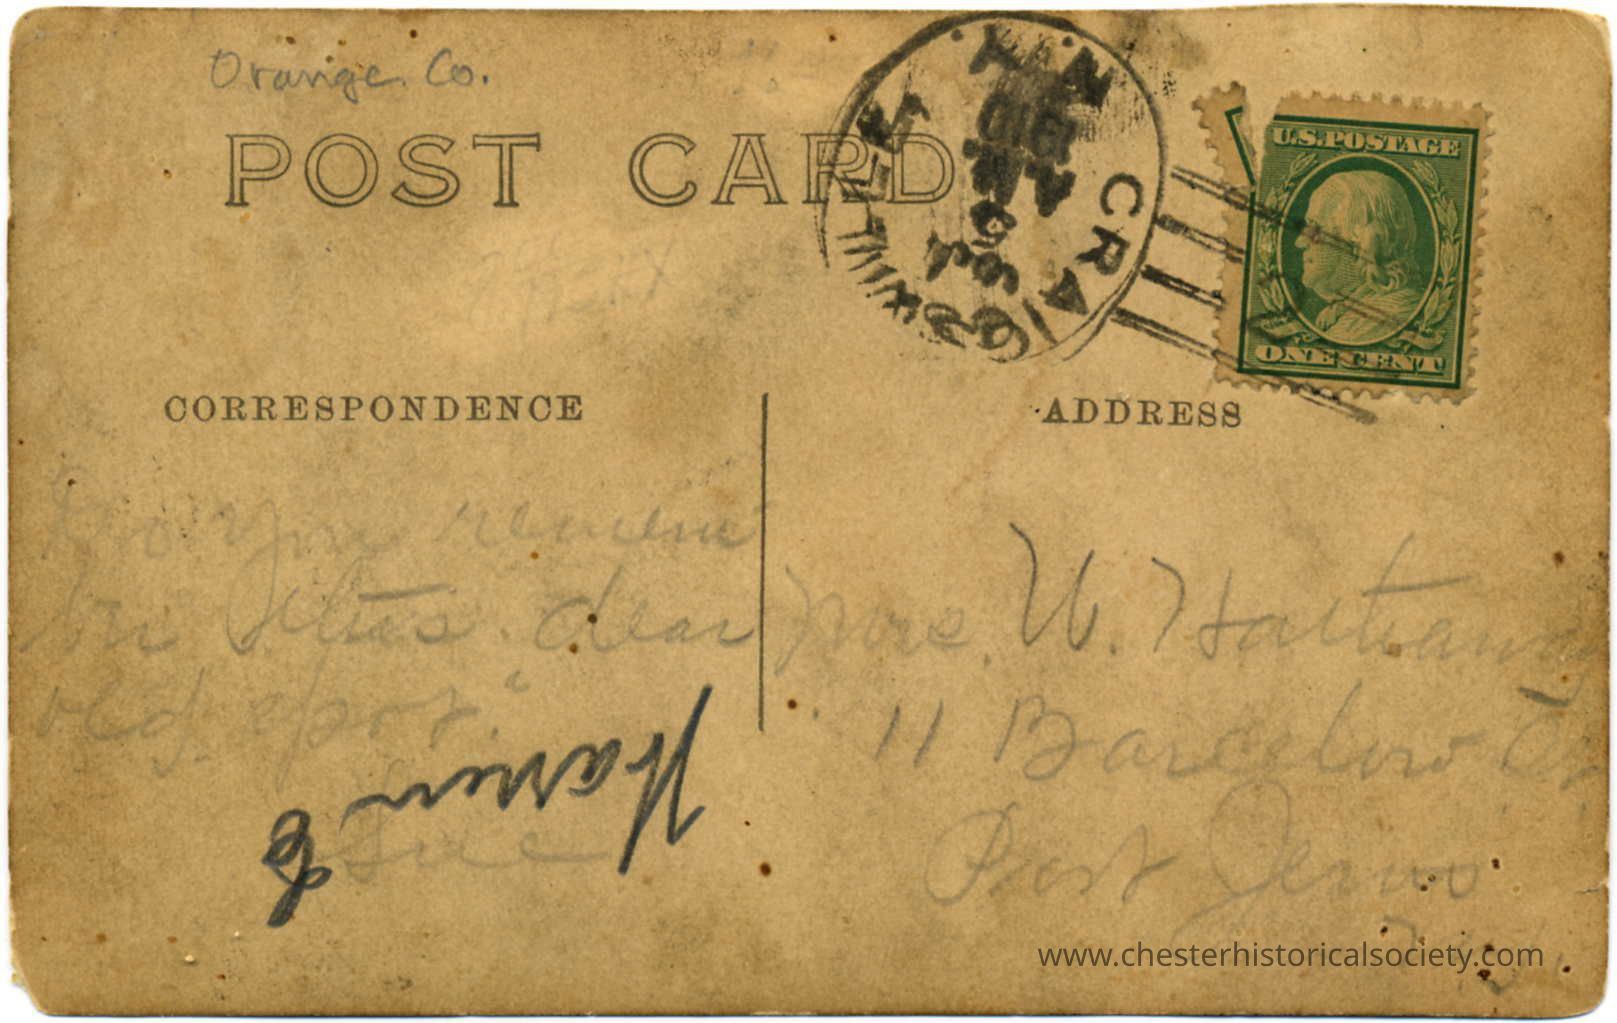 Orange. Co.
POST CARD
CRAIGSVILLE
N.Y.
U.S. POSTAGE
ONE CENT
CORRESPONDENCE
ADDRESS
Do you remem
ber dear
old spot."
Sue
Mrs. W. Hathaway
11 Barcelow St
Port Jervis
N.Y.
www.chesterhistoricalsociety.com